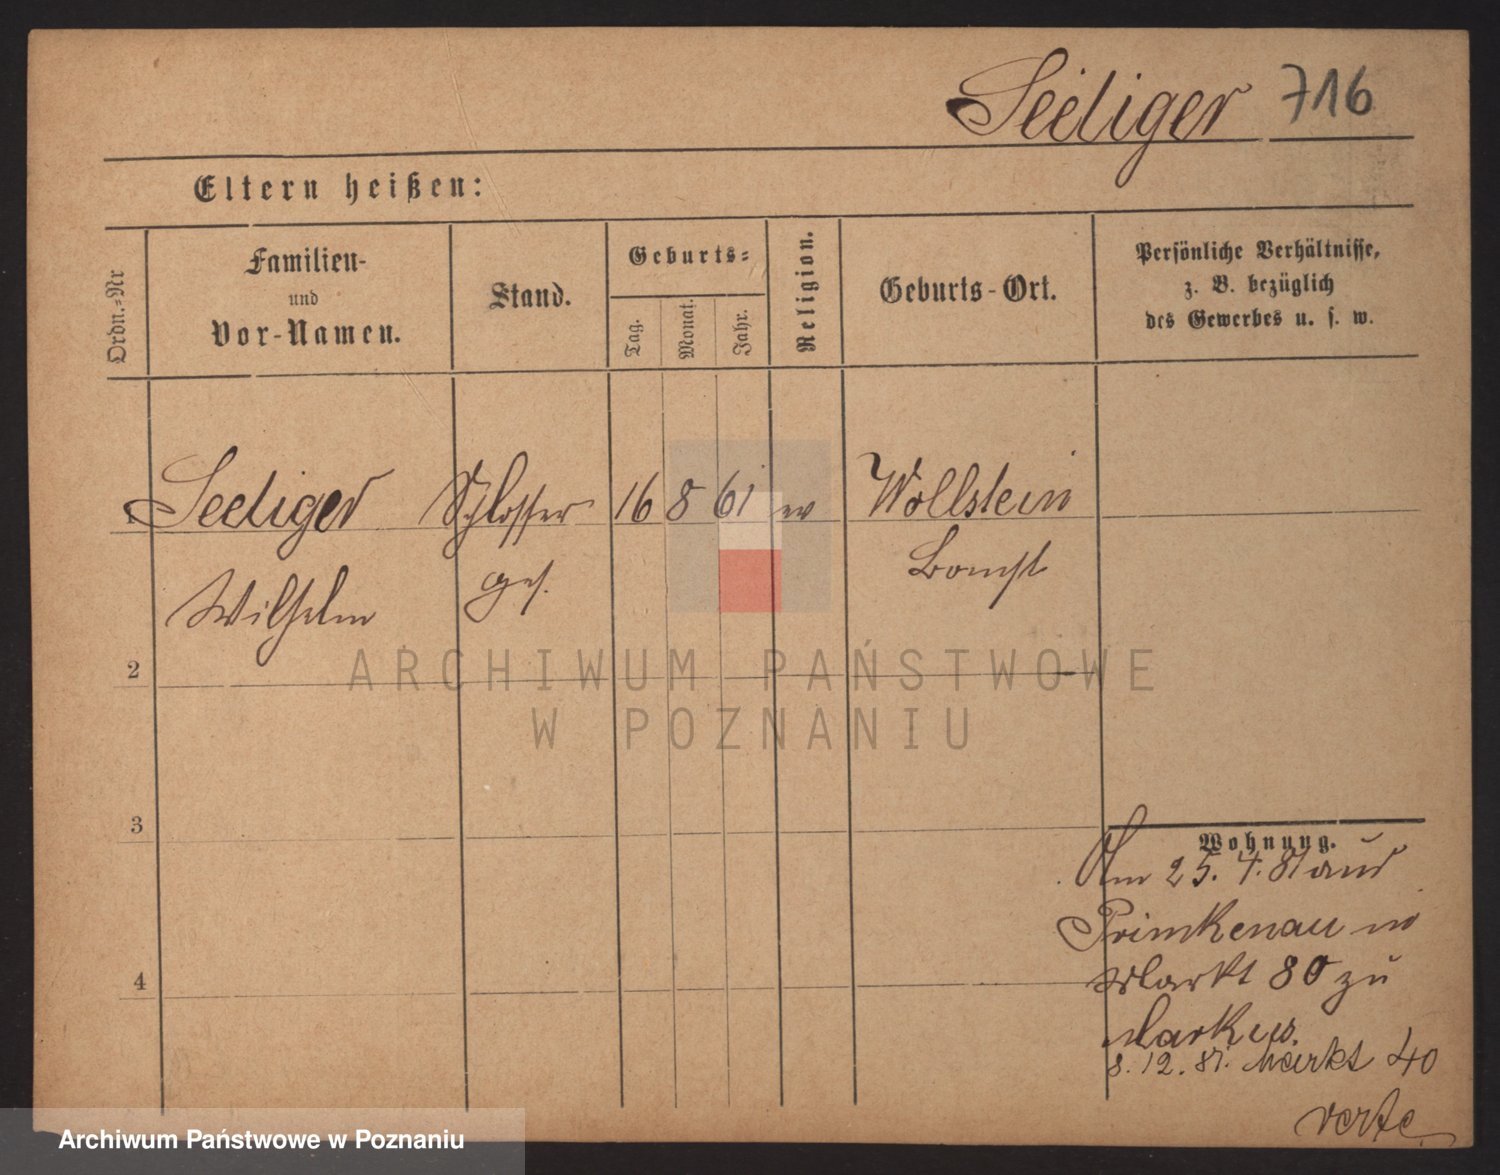 Seeliger 716
Eltern heißen:
Ordn.-Nr
Familien-
und
Vor-Namen.
Stand.
Geburts-
Tag.
Monat.
Jahr.
Religion.
Geburts-Ort.
Persönliche Verhältnisse,
z. B. bezüglich
des Gewerbes u. s. w.
1 Seeliger Schlosser 16 8 61 ev Wollstein
Wilhelm ges. Bomst
2
ARCHIWUM PAŃSTWOWE
W POZNANIU
3
Wohnung.
Am 25. 4. 81 aus
Primkenau
Markt 80 zu
Markus.
8. 12. 81. Markt 40
verte
4
Archiwum Państwowe w Poznaniu